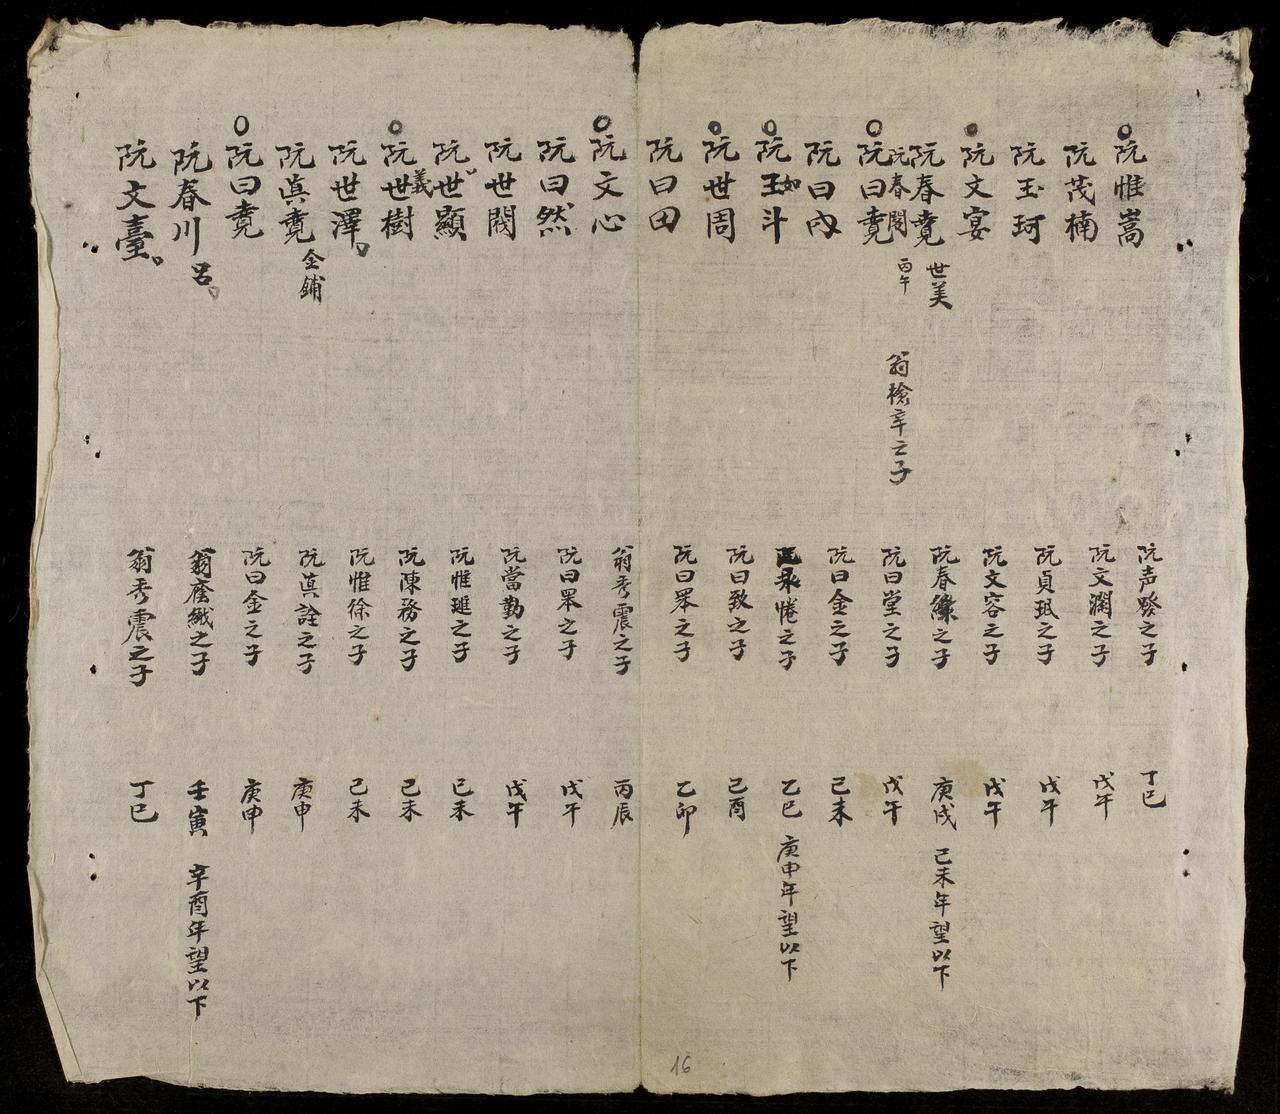 阮惟嵩 阮声發之子 丁巳
阮茂楠 阮文瀾之子 戊午
阮玉珂 阮貞珉之子 戊午
阮文宴 阮文容之子 戊午
阮春薧 世美 阮春緣之子 庚戌 己未年望以下
阮春閣 丙午 翁檜辛之子
阮曰薧 阮曰堂之子 戊午
阮曰内 阮曰金之子 己未
阮玉如斗 惓之子 乙巳 庚申年望以下
阮世周 阮曰致之子 己酉
阮曰田 阮曰睪之子 乙卯
阮文心 翁秀震之子 丙辰
阮曰然 阮曰睪之子 戊午
阮世閥 阮當勤之子 戊午
阮世顯 阮惟璡之子 己未
阮世義樹 阮陳務之子 己未
阮世澤 阮惟徐之子 己未
阮眞薧 仝鋪 阮眞詮之子 庚申
阮曰薧 阮曰金之子 庚申
阮春川 呂 翁蔭纖之子 壬寅 辛酉年望以下
阮文臺 翁秀震之子 丁巳
16